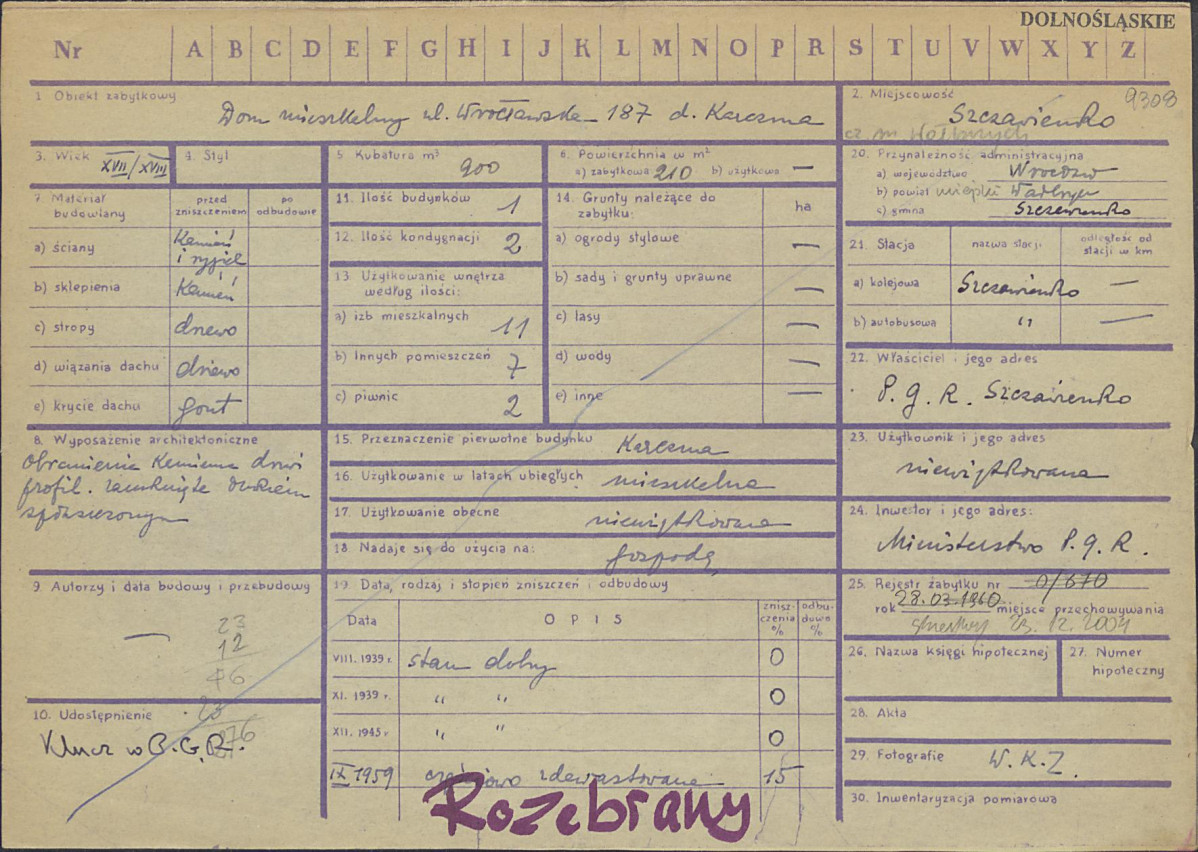 DOLNOŚLĄSKIE
Nr A B C D E F G H I J K L M N O P R S T U V W X Y Z
1. Obiekt zabytkowy
Dom mieszkalny ul. Wrocławska 187 d. Karczma
2. Miejscowość 9308
Szczawienko
cz. m.
3. Wiek XVII/XVIII
4. Styl
5. Kubatura m³ 900
6. Powierzchnia w m²
a) zabytkowa 210 b) użytkowa —
7. Materiał budowlany
przed zniszczeniem
po odbudowie
a) ściany Kamień i rygiel
b) sklepienia Kamień
c) stropy drewo
d) wiązania dachu drewo
e) krycie dachu gont
8. Wyposażenie architektoniczne
Obramienia Kamienne drzwi
profil. zamknięte łukiem
spłaszczonym
9. Autorzy i data budowy i przebudowy
—
23
12
46
23
276
10. Udostępnienie
Klucz w P.G.R.
11. Ilość budynków 1
12. Ilość kondygnacji 2
13. Użytkowanie wnętrza według ilości:
a) izb mieszkalnych 11
b) Innych pomieszczeń 7
c) piwnic 2
14. Grunty należące do zabytku: ha
a) ogrody stylowe —
b) sady i grunty uprawne —
c) lasy —
d) wody —
e) inne —
15. Przeznaczenie pierwotne budynku Karczma
16. Użytkowanie w latach ubiegłych mieszkalna
17. Użytkowanie obecne nieużytkowana
18. Nadaje się do użycia na: gospodę
19. Data, rodzaj i stopień zniszczeń i odbudowy
Data OPIS zniszczenia % odbudowa %
VIII. 1939 r. stan dobry 0
XI. 1939 r. " " 0
XII. 1945 r. " " 0
IX 1959 częściowo zdewastowana 15
Rozebrany
20. Przynależność administracyjna
a) województwo Wrocław
b) powiat miejski Wałbrzych
c) gmina Szczawienko
21. Stacja nazwa stacji odległość od stacji w km
a) kolejowa Szczawienko —
b) autobusowa " —
22. Właściciel i jego adres
P.G.R. Szczawienko
23. Użytkownik i jego adres
nieużytkowana
24. Inwestor i jego adres:
Ministerstwo P.G.R.
25. Rejestr zabytku nr 0/670
rok 28.03.1960 miejsce przechowywania
skreślony 23.12.2004
26. Nazwa księgi hipotecznej
27. Numer hipoteczny
28. Akta
29. Fotografie W.K.Z.
30. Inwentaryzacja pomiarowa